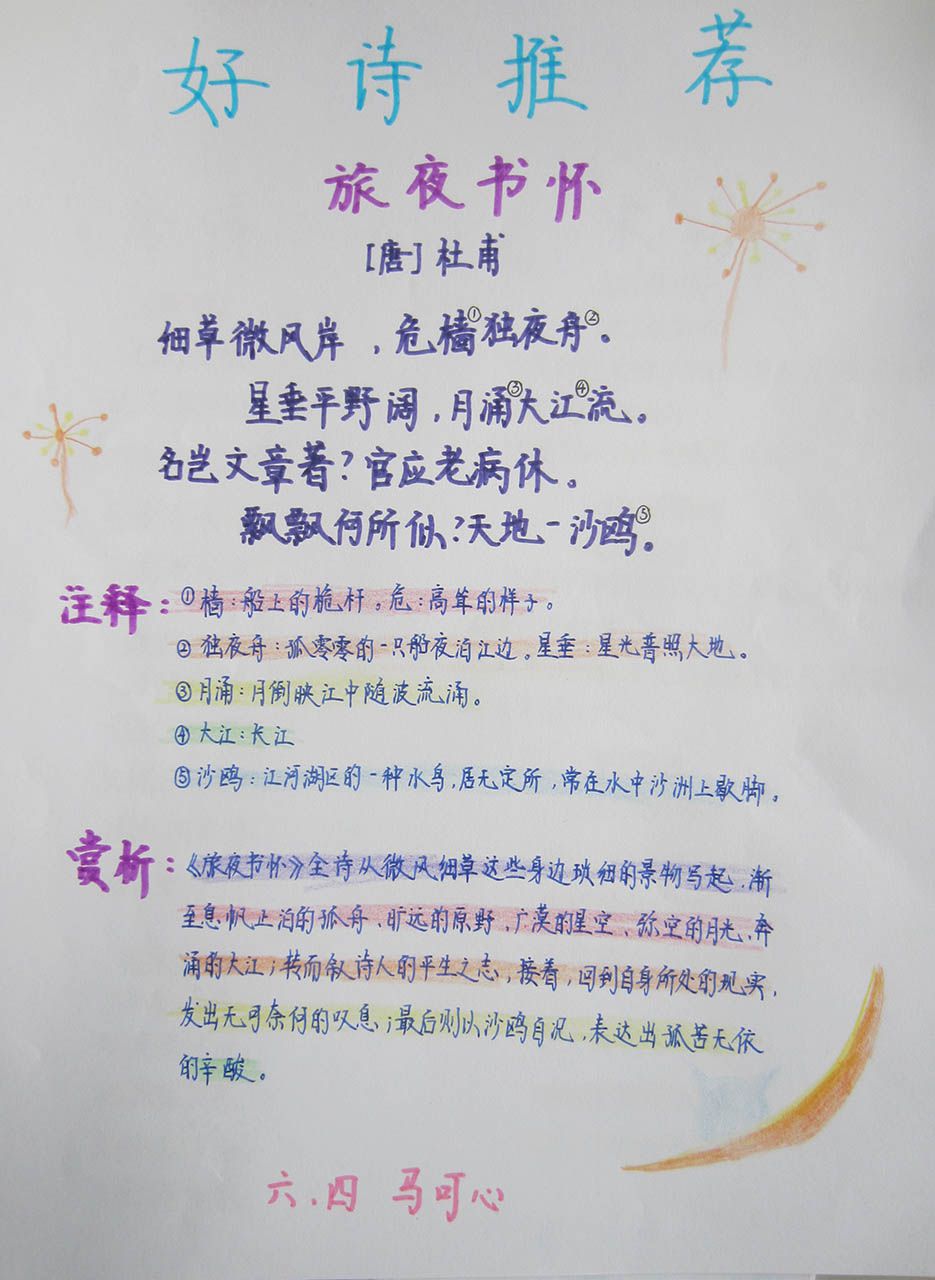 好诗推荐
旅夜书怀
[唐]杜甫
细草微风岸，危樯①独夜舟②。
星垂平野阔，月涌③大江④流。
名岂文章著？官应老病休。
飘飘何所似？天地一沙鸥⑤。
注释：①樯：船上的桅杆。危：高耸的样子。
②独夜舟：孤零零的一只船夜泊江边。星垂：星光普照大地。
③月涌：月倒映江中随波流涌。
④大江：长江
⑤沙鸥：江河湖区的一种水鸟，居无定所，常在水中沙洲上歇脚。
赏析：《旅夜书怀》全诗从微风细草这些身边琐细的景物写起，渐
至息帆上泊的孤舟、旷远的原野、广漠的星空、弥空的月光、奔
涌的大江；转而叙诗人的平生之志，接着，回到自身所处的现实，
发出无可奈何的叹息；最后则以沙鸥自况，表达出孤苦无依
的辛酸。
六.四 马可心